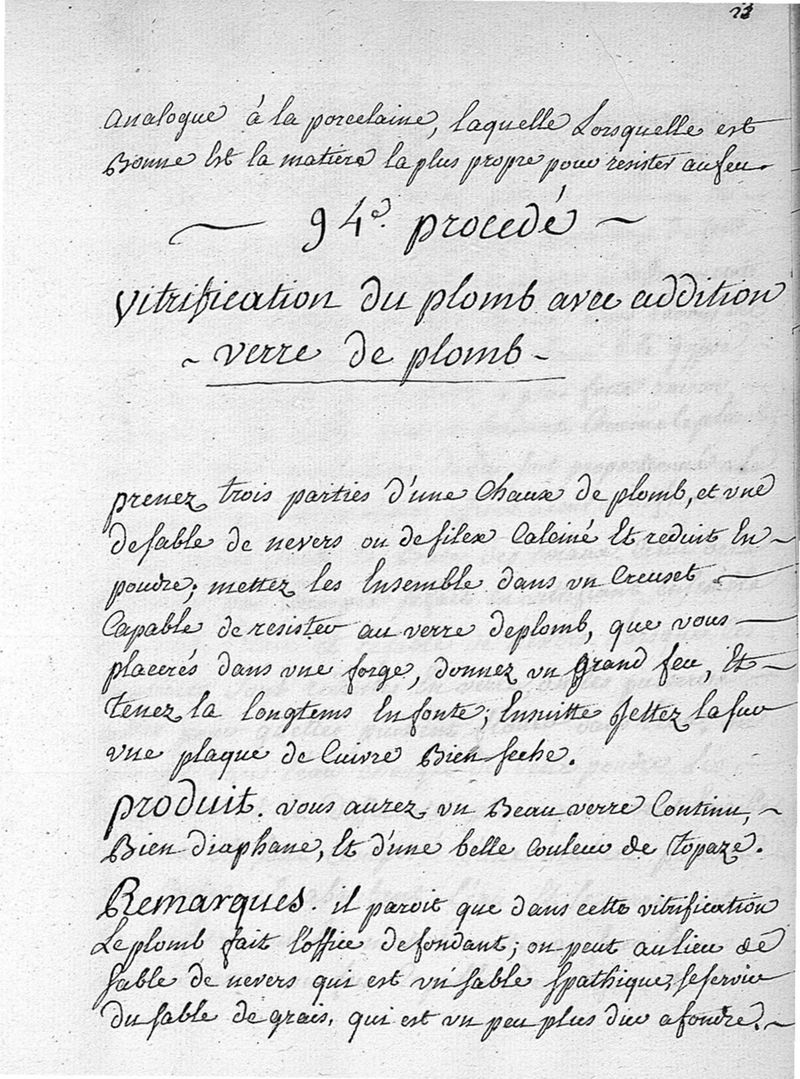 23
analogue á la porcelaine, laquelle Lorsquelle est
Bonne Est la matiere la plus propre pour resister au feu.
94e. procedé
vitrification du plomb avec addition
- verre de plomb -
prenez trois parties d'une Chaux de plomb, et vne
de sable de nevers ou de silex Calciné Et reduit En
poudre; mettez les Ensemble dans vn Creuset
Capable de resister au verre de plomb, que vous
placerés dans vne forge, donnez vn grand feu, Et
tenez la longtems En fonte; Ensuitte Jettez la sur
vne plaque de Cuivre Bien seche.
produit. vous aurez vn Beau verre Continu,
Bien diaphane, Et d'une belle Couleur de topaze.
Remarques. il paroit que dans cette vitrification
Le plomb fait l'office de fondant; on peut au lieu de
sable de nevers qui est vn sable spathique, se servir
du sable de grais, qui est vn peu plus dur a fondre.